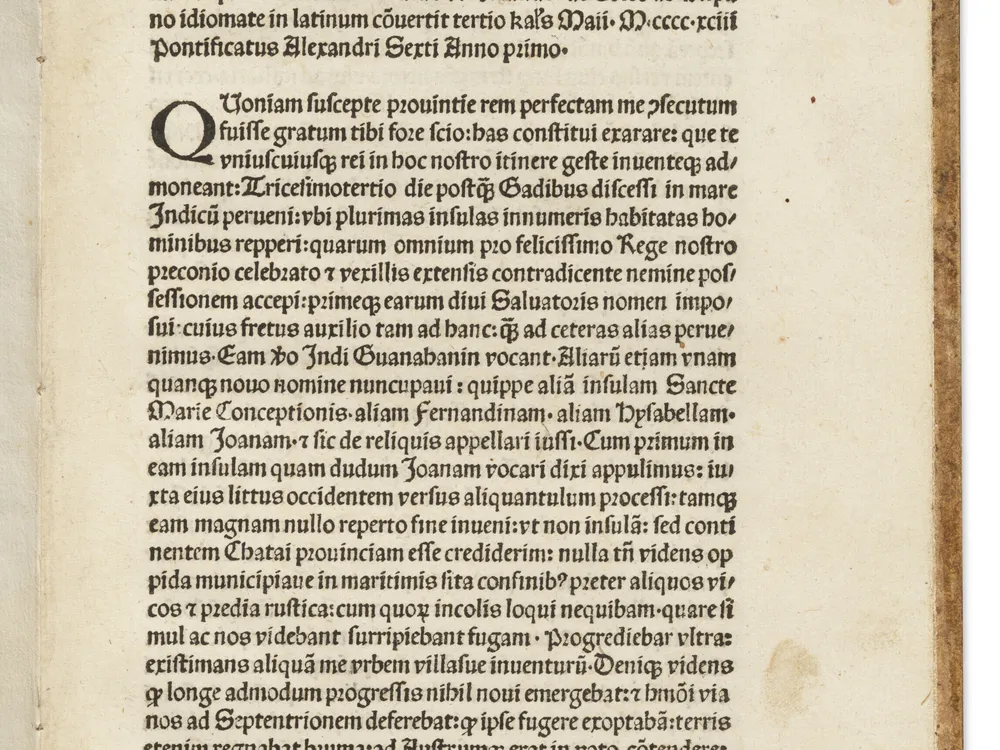 no idiomate in latinum cõuertit tertio kal's Maii· M·cccc·xciii
Pontificatus Alexandri Sexti Anno primo·
QUoniam suscepte prouintie rem perfectam me ↄsecutum
fuisse gratum tibi fore scio: has constitui exarare: que te
vniuscuiusqꝫ rei in hoc nostro itinere geste inuenteqꝫ ad⸗
moneant: Tricesimotertio die postqꝫ̃ Gadibus discessi in mare
Indicũ perueni: vbi plurimas insulas innumeris habitatas ho⸗
minibus repperi: quarum omnium pro felicissimo Rege nostro
preconio celebrato ⁊ vexillis extensis contradicente nemine pos⸗
sessionem accepi: primeqꝫ earum diui Saluatoris nomen impo⸗
sui· cuius fretus auxilio tam ad hanc: qꝫ̃ ad ceteras alias perue⸗
nimus· Eam ꝟo Indi Guanahanin vocant· Aliarũ etiam vnam
quanqꝫ nouo nomine nuncupaui: quippe aliã insulam Sancte
Marie Conceptionis· aliam Fernandinam· aliam Hysabellam·
aliam Joanam· ⁊ sic de reliquis appellari iussi· Cum primum in
eam insulam quam dudum Joanam vocari dixi appulimus: iu⸗
xta eius littus occidentem versus aliquantulum processi: tamqꝫ
eam magnam nullo reperto fine inueni: vt non insulã: sed conti
nentem Chatai prouinciam esse crediderim: nulla tñ videns op
pida municipiaue in maritimis sita confinibꝰ preter aliquos vi⸗
cos ⁊ predia rustica: cum quoꝝ incolis loqui nequibam· quare si
mul ac nos videbant surripiebant fugam· Progrediebar vltra:
existimans aliquã me vrbem villasue inuenturũ· Deniqꝫ videns
ꝙ longe admodum progressis nihil noui emergebat: ⁊ hmõi via
nos ad Septentrionem deferebat: ꝙ ipse fugere exoptabã: terris
etenim regnabat bruma: ad Austrumqꝫ erat in voto cõtendere: